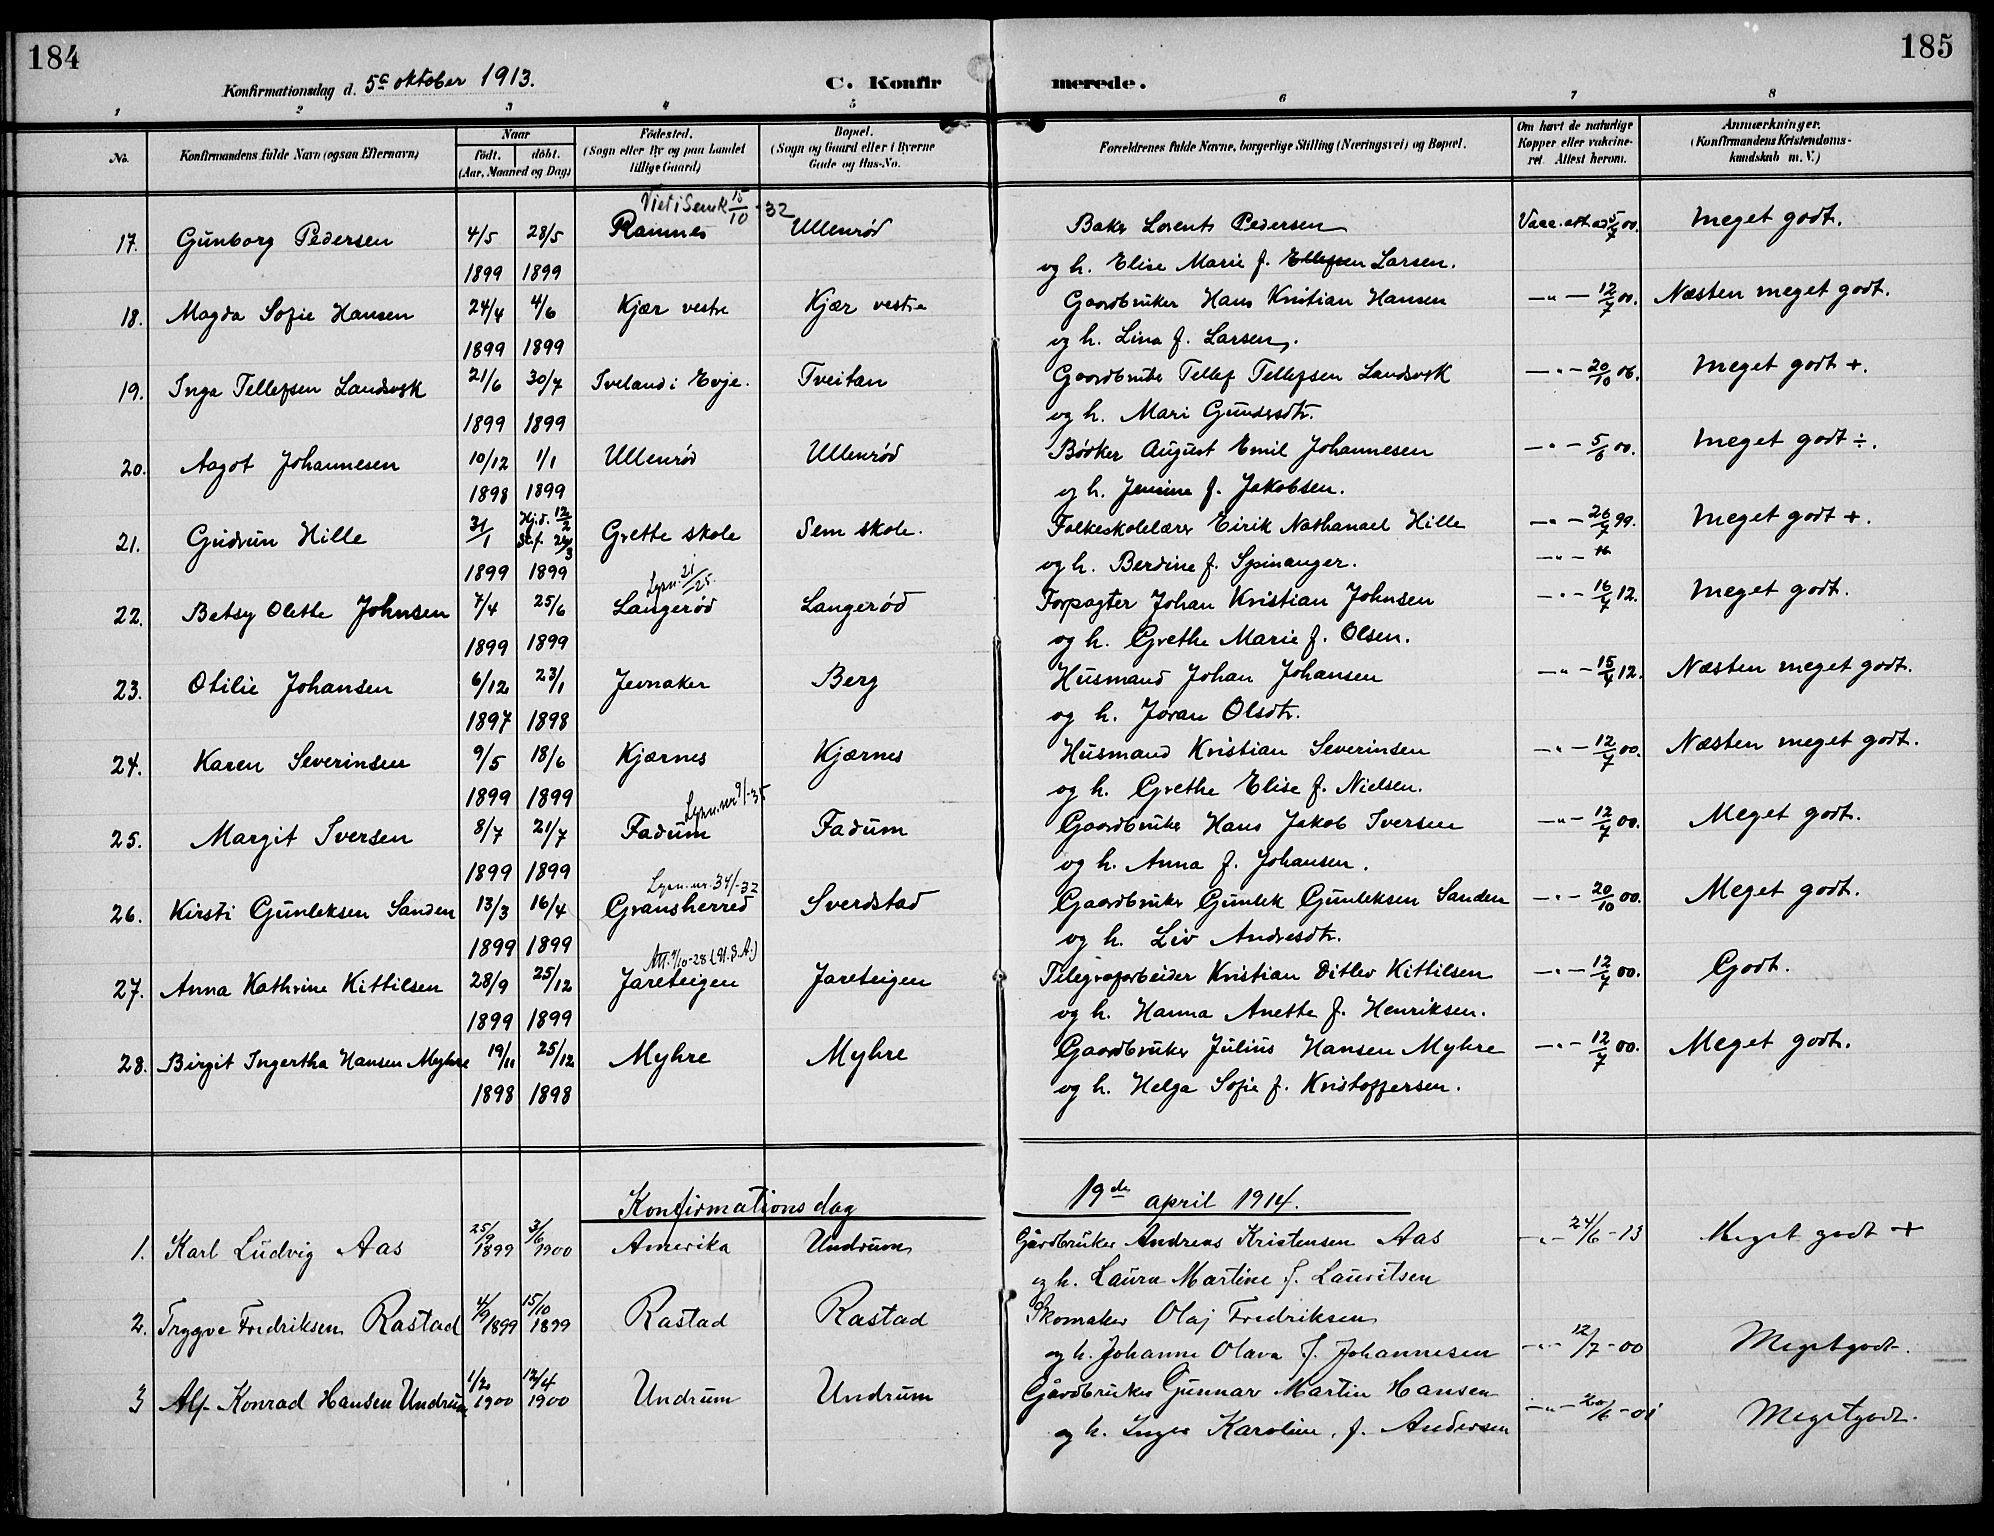 184
185
Konfirmationsdag d. 5e oktober 1913.
C. Konfir
merede.
1 2 3 4 5 6 7 8
No.
Konfirmandens fulde Navn (ogsaa Efternavn)
Naar
født. døbt.
(Aar, Maaned og Dag)
Fødested.
(Sogn eller By og paa Landet
tillige Gaard)
Bopæl.
(Sogn og Gaard eller i Byerne
Gade og Hus-No.
Forældrenes fulde Navne, borgerlige Stilling (Næringsvei) og Bopæl.
Om havt de naturlige
Kopper eller vakcine-
ret. Attest herom.
Anmærkninger.
(Konfirmandens Kristendoms-
kundskab m. V.)
Viet i Sem k 15/10-32
17. Gunborg Pedersen 4/5 28/5 Ramnes Ullenrød Baker Lorents Pedersen Vacc. att. ad 5/7 00. Meget godt.
1899 1899 og h. Elise Marie f. Ellefsen Larsen.
18. Magda Sofie Hansen 24/4 4/6 Kjær vestre Kjær vestre Gaardbruker Hans Kristian Hansen —"— 12/7 00. Næsten meget godt.
1899 1899 og h. Lina f. Larsen.
19. Inga Tellefsen Landsverk 21/6 30/7 Iveland i Evje. Tveitan Gaardbruker Tellef Tellefsen Landsverk —"— 20/10 06. Meget godt +.
1899 1899 og h. Mari Gundersdtr.
20. Aagot Johannesen 10/12 1/1 Ullenrød Ullenrød Bødker August Emil Johannesen —"— 5/6 00. Meget godt ÷.
1898 1899 og h. Jensine f. Jakobsen.
21. Gudrun Hille 31/1 Hj.d. 12/2 Grette skole Sem skole. Folkeskolelærer Eirik Nathanael Hille —"— 26/7 99. Meget godt +.
1899 1899 og h. Berdine f. Spinanger. —"—
Lysn. 21/25.
22. Betsy Olette Johnsen 7/4 25/6 Langerød Langerød Forpagter Johan Kristian Johnsen —"— 16/7 12. Meget godt.
1899 1899 og h. Grethe Marie f. Olsen.
23. Otilie Johansen 6/12 23/1 Jevnaker Berg Husmand Johan Johansen —"— 15/4 12. Næsten meget godt.
1897 1898 og h. Joran Olsdtr.
24. Karen Severinsen 9/5 18/6 Kjærnes Kjærnes Husmand Kristian Severinsen —"— 12/7 00. Næsten meget godt.
1899 1899 og h. Grethe Elise f. Nielsen.
Lysn. nr 9/-35
25. Margit Iversen 8/7 21/7 Fadum Fadum Gaardbruker Hans Jakob Iversen —"— 12/7 00. Meget godt.
1899 1899 og h. Anna f. Johansen.
Lysn. nr. 34/-32
26. Kirsti Gunleksen Sanden 13/3 16/4 Gransherred Sverdstad Gaardbruker Gunlek Gunleksen Sanden —"— 20/10 00. Meget godt.
1899 1899 og h. Liv Andresdtr.
27. Anna Kathrine Kittilsen 28/9 25/12 Jareteigen Jareteigen Telegrafarbeider Kristian Ditlev Kittilsen —"— 12/7 00. Godt.
1899 1899 og h. Hanna Anette f. Henriksen.
28. Birgit Ingertha Hansen Myhre 19/11 25/12 Myhre Myhre Gaardbruker Julius Hansen Myhre —"— 12/7 00. Meget godt.
1898 1898 og h. Helga Sofie f. Kristoffersen.
Konfirmationsdag 19de april 1914.
1. Karl Ludvig Aas 25/9 1899 3/6 1900 Amerika Undrum Gårdbruker Andreas Kristensen Aas —"— 24/6-13 Meget godt +
og h. Laura Martine f. Lauritsen
2. Trygve Fredriksen Rastad 4/9 1899 15/10 1899 Rastad Rastad Skomaker Olaf Fredriksen
og h. Johanne Olava f. Johannesen —"— 12/7-00 Meget godt.
3 Alf Konrad Hansen Undrum 1/2 1900 1900 Undrum Undrum Gårdbruker Gunnar Martin Hansen —"— 20/6-01 Meget godt.
og h. Inga Karoline f. Andersen